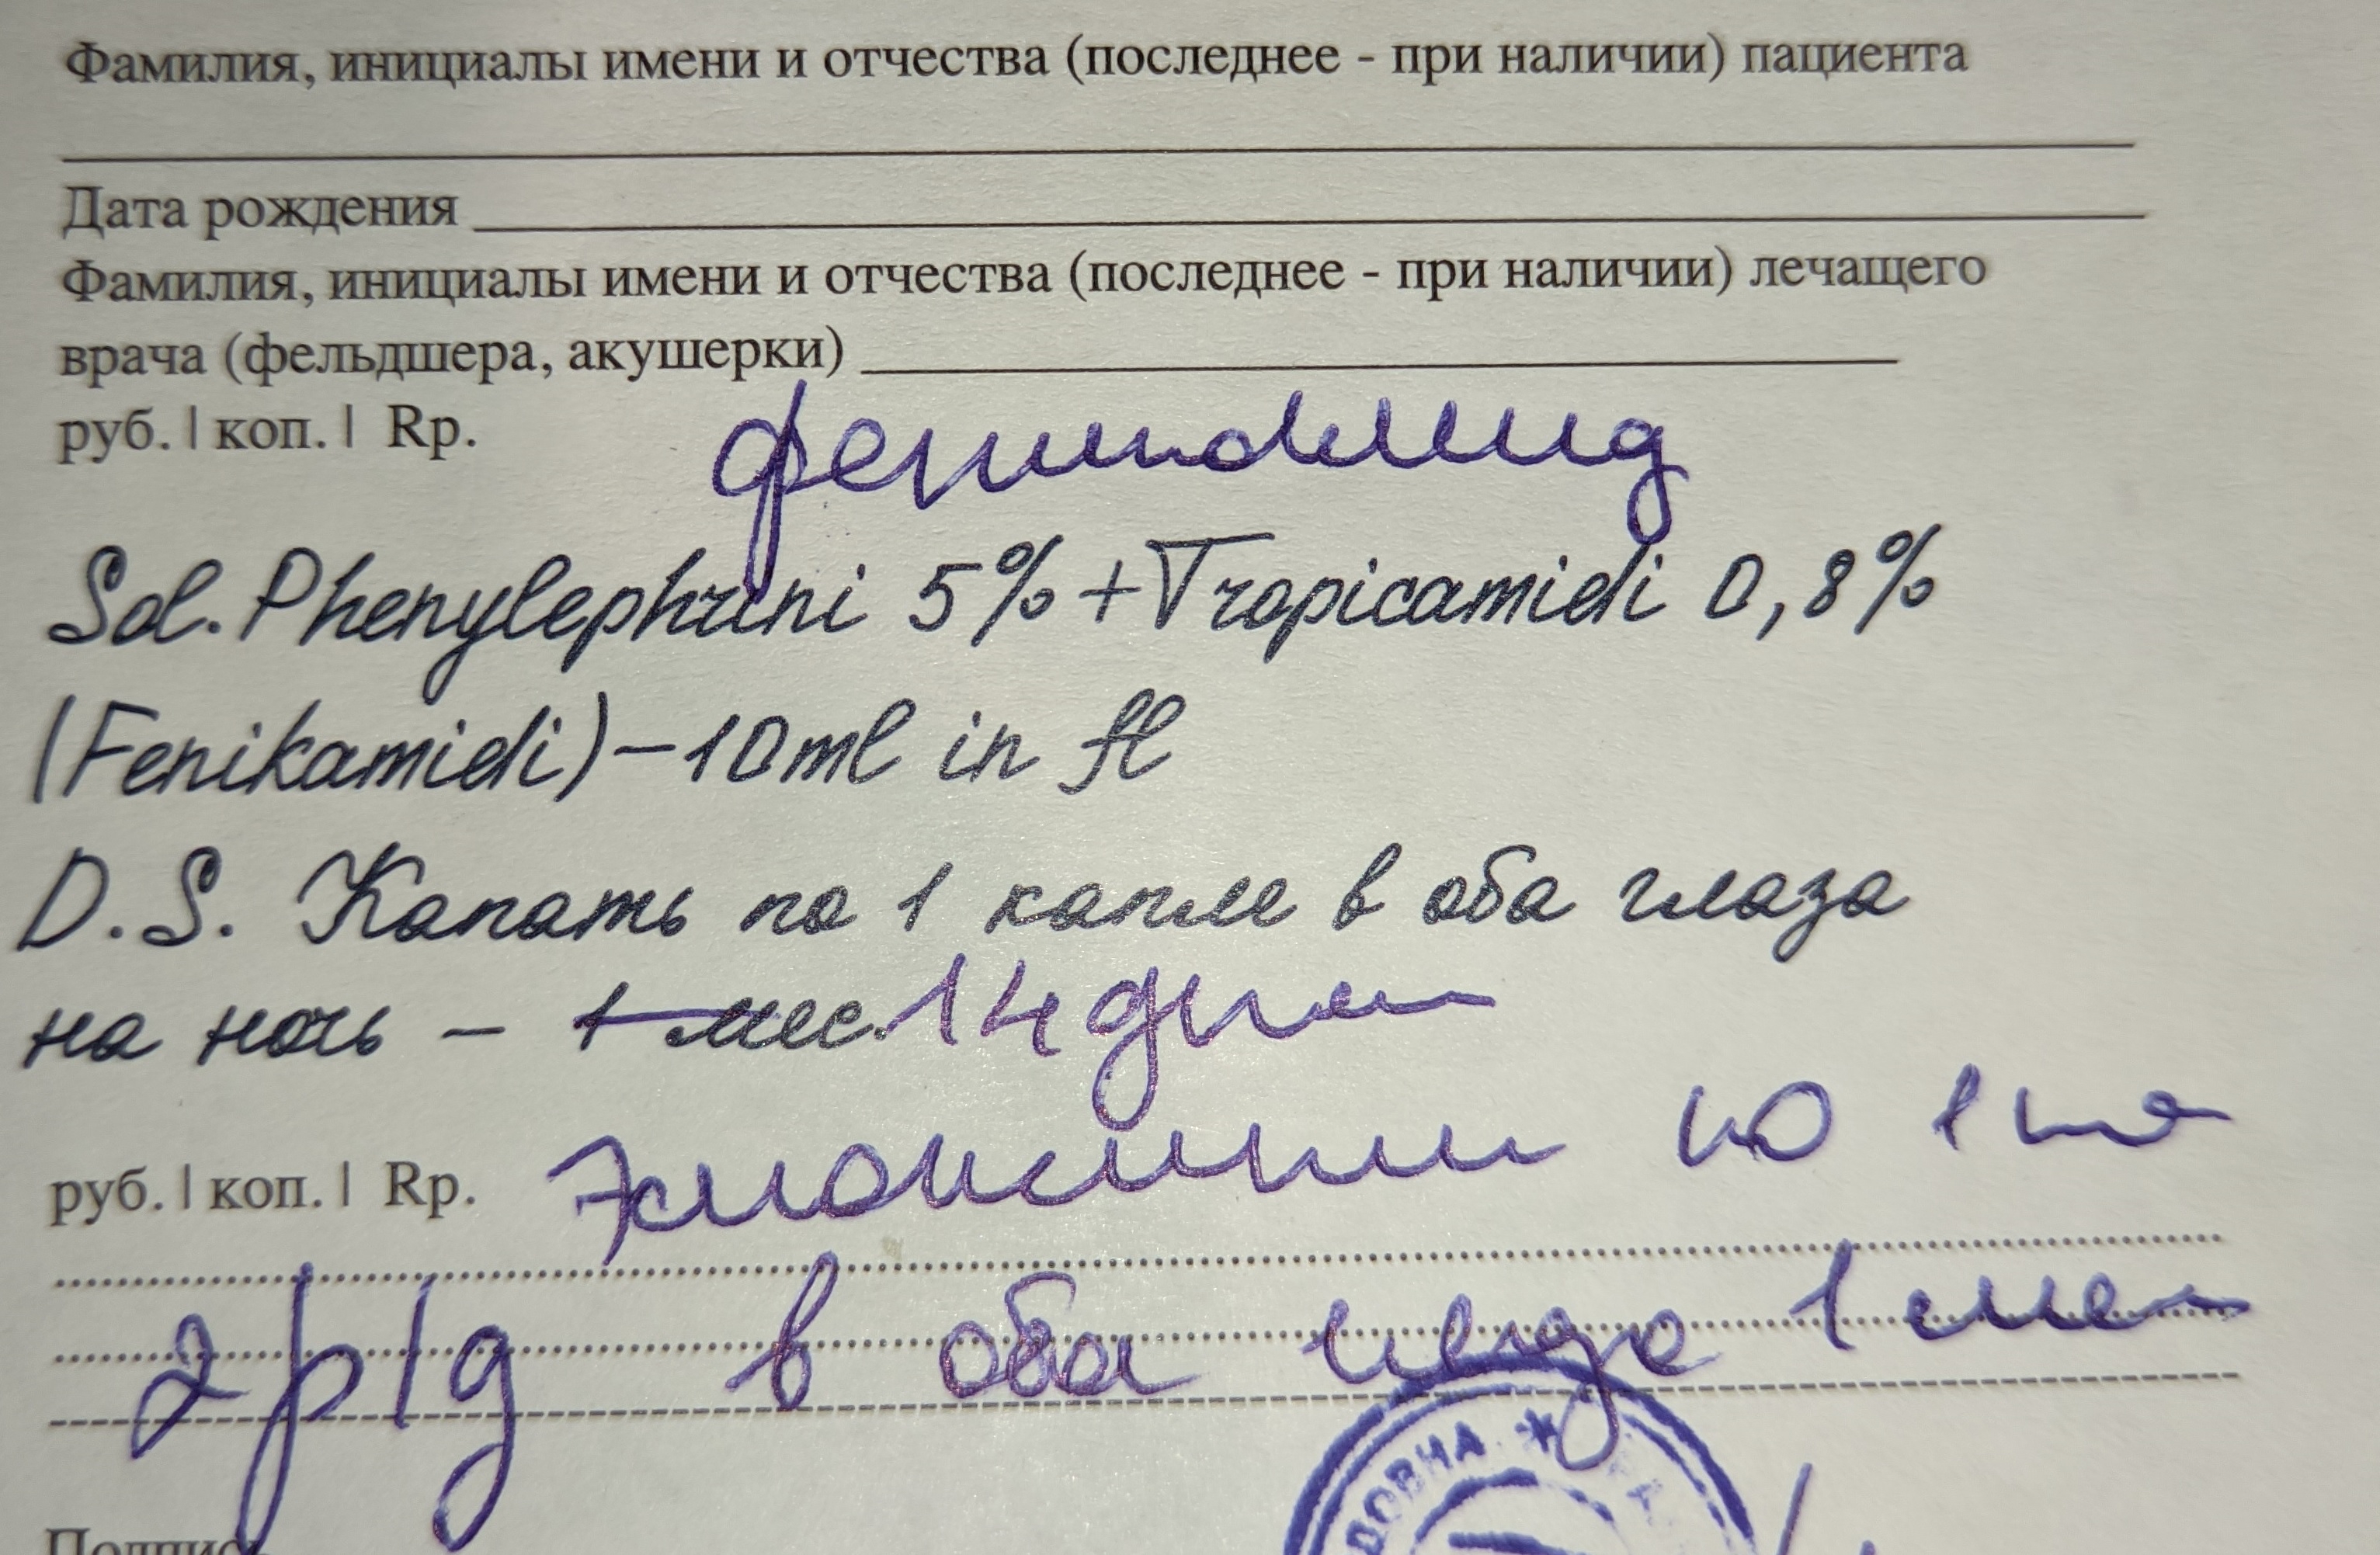 Фамилия, инициалы имени и отчества (последнее - при наличии) пациента
Дата рождения
Фамилия, инициалы имени и отчества (последнее - при наличии) лечащего
врача (фельдшера, акушерки)
руб. | коп. | Rp.
Sol. Phenylephrini 5% + Tropicamidi 0,8%
(Fenikamidi) – 10ml in fl
D.S. Капать по 1 капле в оба глаза
на ночь – 1 мес. 14 дней
руб. | коп. | Rp. по 1 кап
2 р/д в оба глаза 1 мес
ДОВНА *
Подпись